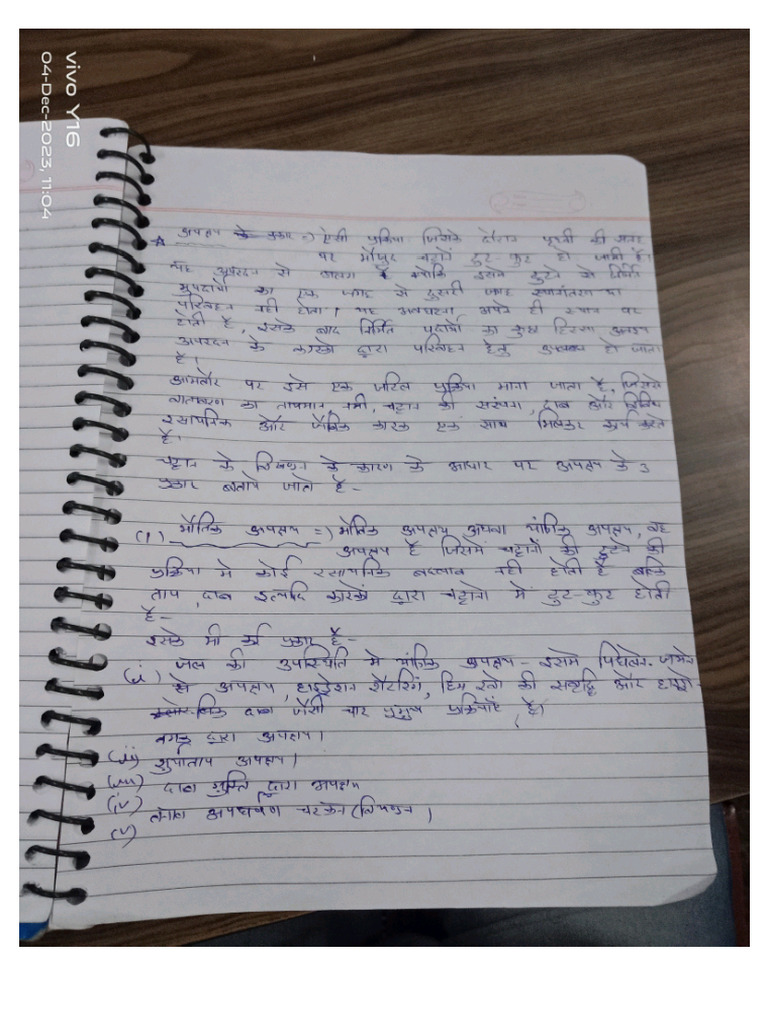 vivo Y16
04-Dec-2023, 11:04
अपक्षय के प्रकार => ऐसी प्रक्रिया जिसके दौरान पृथ्वी की सतह
पर मौजूद चट्टानें टुट-फुट हो जाती है।
यह अपरदन से अलग है क्योकि इसमे टुटने से निर्मित
भुपदार्थो का एक जगह से दुसरी जगह स्थानांतरण या
परिवहन नही होता। यह अपने ही स्थान पर
होती है, इसके बाद निर्मित पदार्थो का कुछ हिस्सा
अपरदन के कारको द्वारा परिवहन हेतु उपलब्ध हो जाता
है।
आमतौर पर इसे एक जटिल प्रक्रिया माना जाता है, जिसमे
वातावरण का तापमान, नमी, चट्टान की संरचना, दाब और विभिन्न
रसायनिक और जैविक कारक एक साथ मिलकर कार्य करते
है।
चट्टान के विखण्डन के कारण के आधार पर अपक्षय के 3
प्रकार बताये जाते है -
(1) भौतिक अपक्षय => भौतिक अपक्षय अथवा यांत्रिक अपक्षय, वह
अपक्षय है जिसमें चट्टानों की टुटने की
प्रक्रिया मे कोई रसायनिक बदलाव नही होती है बल्कि
ताप, दाब इत्यादि कारकों द्वारा चट्टानो में टुट-फुट होती
है-
इसके भी कई प्रकार है-
(i) जल की उपस्थिति मे यांत्रिक अपक्षय - इसमे पिघलने-जमने
से अपक्षय, हाइड्रेशन शैटरिंग, हिम रवो की सवृद्धि और हाइड्रो-
लिक दाब जैसी चार प्रमुख प्रक्रियाएँ है।
(ii) द्वारा अपक्षय।
(iii) सुर्याताप अपक्षय।
(iv) दाब मुक्ति द्वारा अपक्षय
(v) अपघर्षण चटकन (विखण्डन)